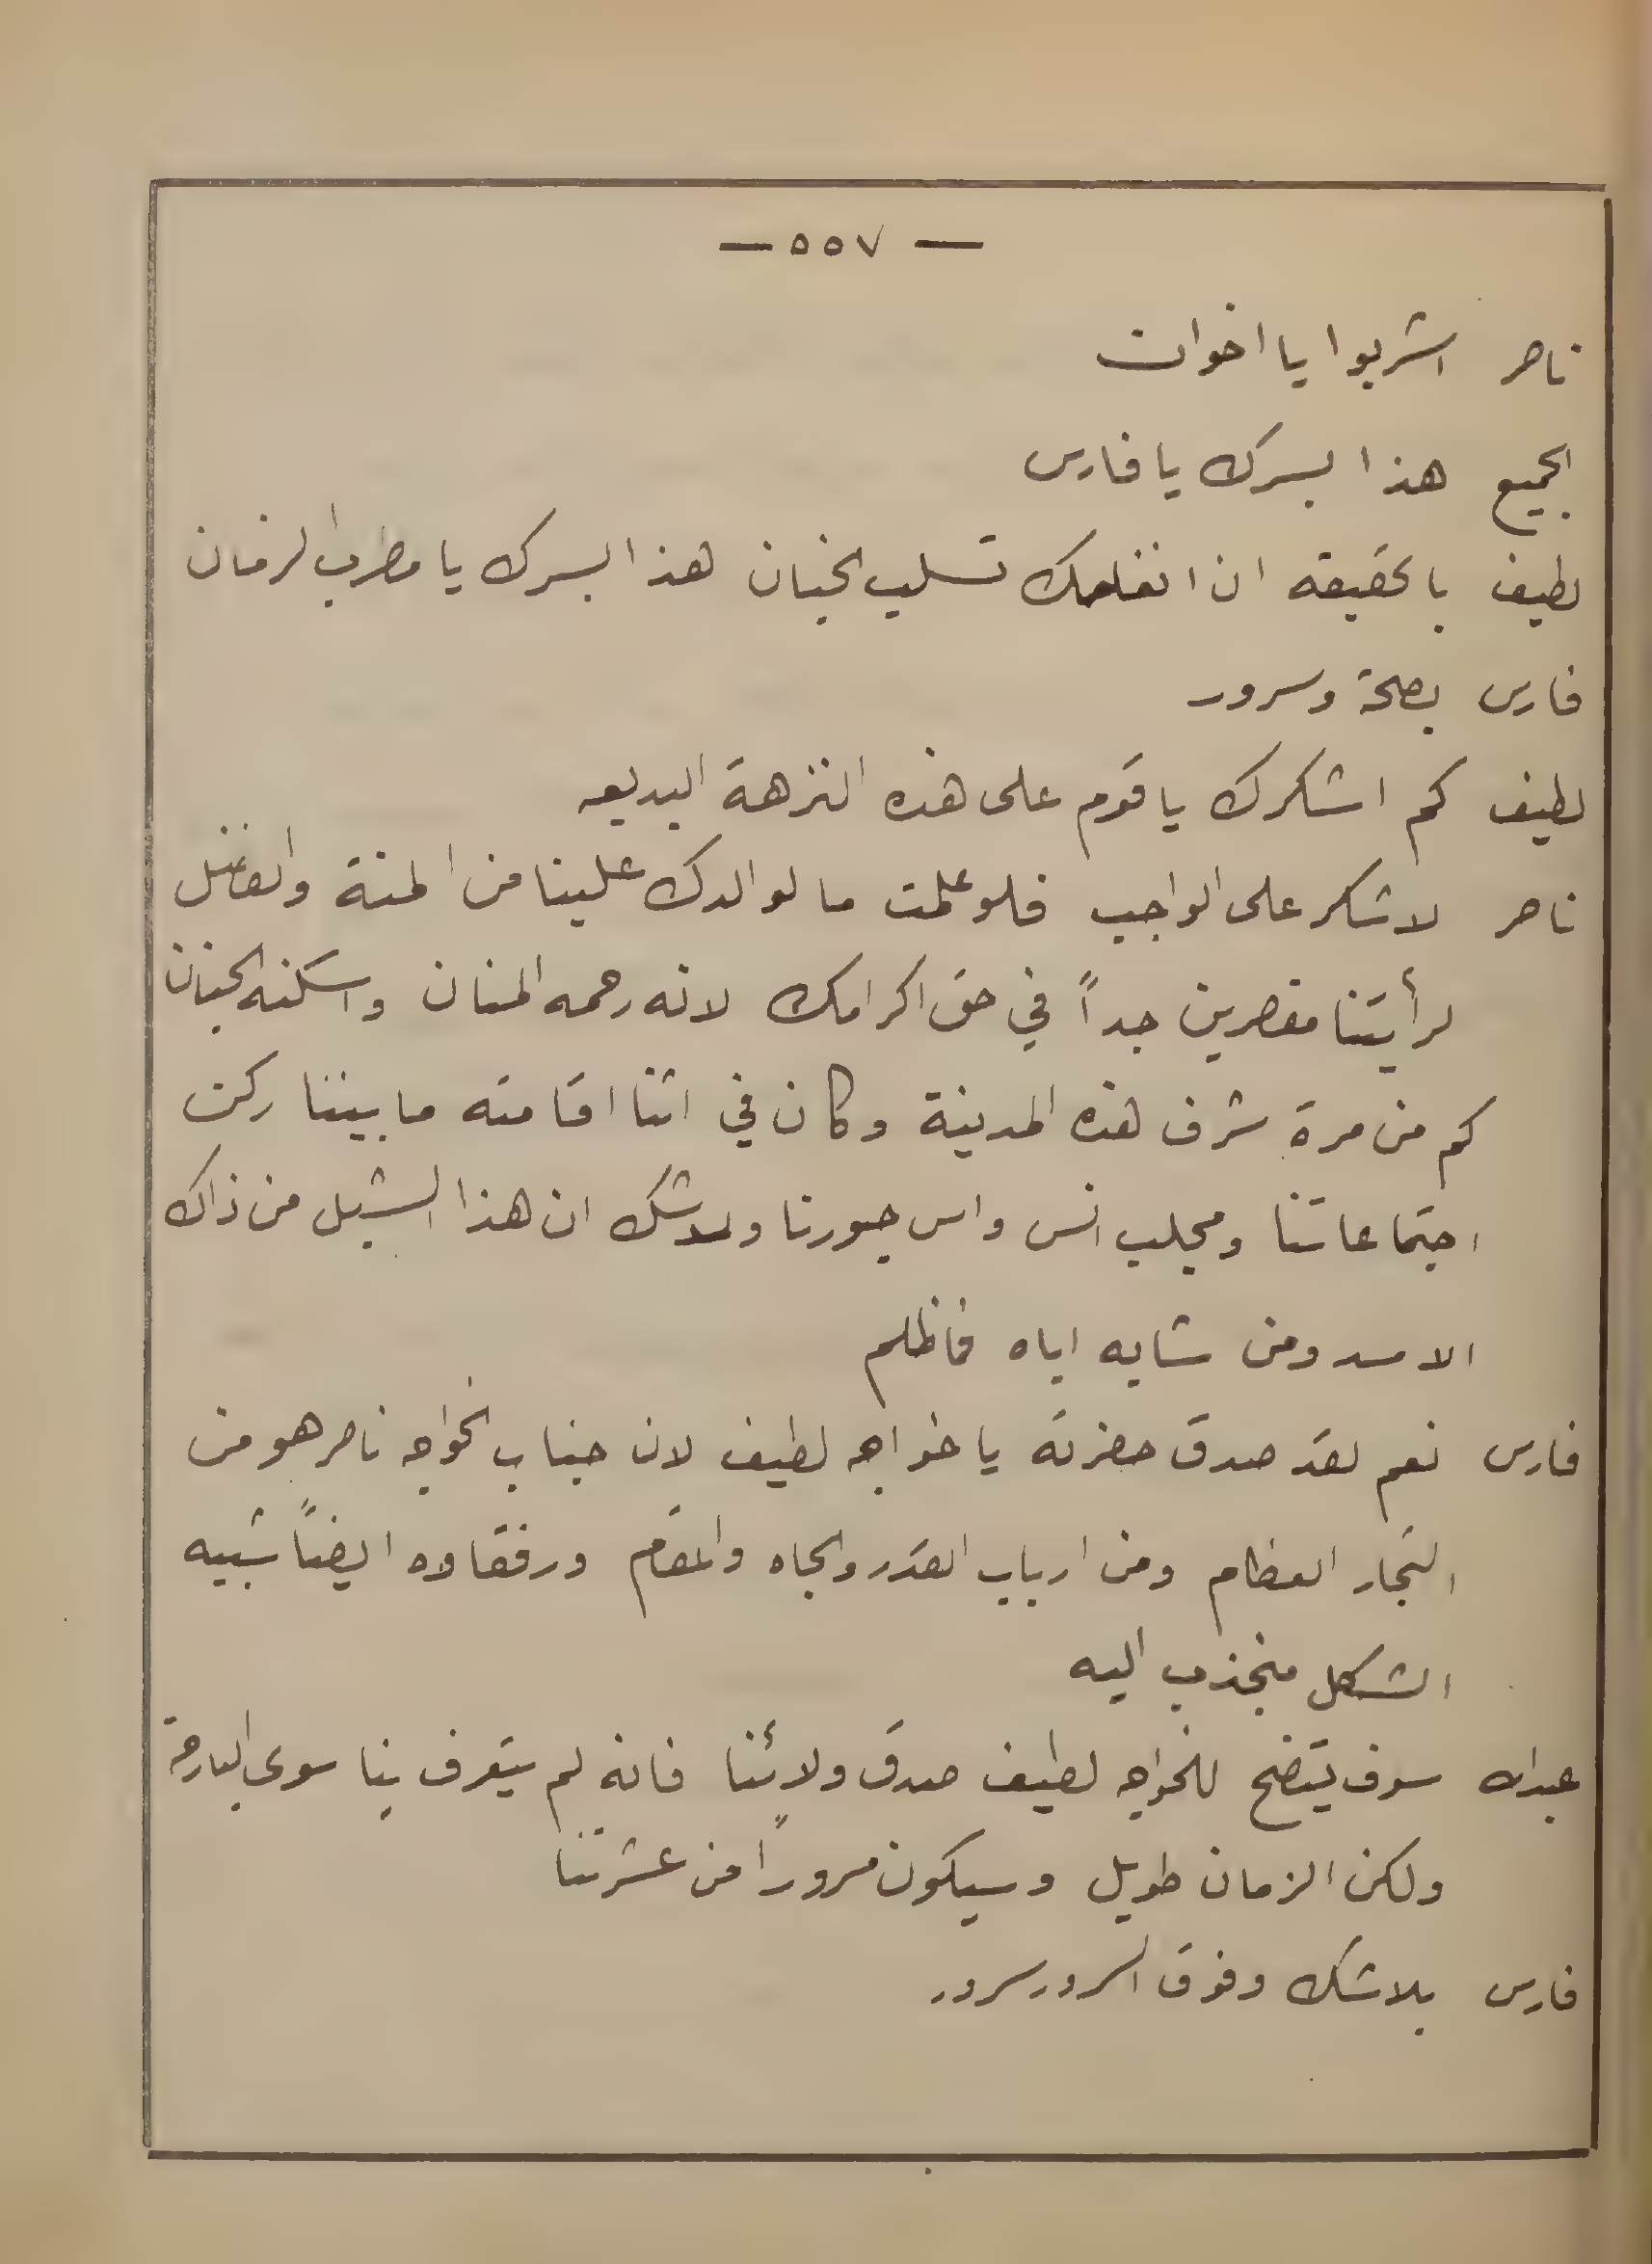 — ٥٥٧ —
ناصر اشربوا يا اخوان
الجميع هذا بسرك يا فارس
لطيف بالحقيقه ان انغامك تسلب الجنان هذا بسرك يا مطرب الزمان
فارس بصحة وسرور
لطيف كم اشكرك يا قوم على هذه النزهة البديعه
ناصر لا شكر على الواجب فلو علمت ما لوالدك علينا من المنة والفضل
لرأيتنا مقصرين جداً في حق اكرامك لانه رحمه المنان واسكنه الجنان
كم من مرة شرف هذه المدينة وكان في اثنا اقامته ما بيننا ركن
اجتماعاتنا ومجلب انس واس حبورنا ولا شك ان هذا الشبل من ذاك
الاسد ومن شابه اباه فما ظلم
فارس نعم لقد صدق حضرته يا خواجه لطيف لان جناب الخواجه ناصر هو من
التجار العظام ومن ارباب القدر والجاه والمقام ورفقاوه ايضاً شبيه
الشكل منجذب اليه
عبدالله سوف يتضح للخواجه لطيف صدق ولائنا فانه لم يتعرف بنا سوى البارحة
ولكن الزمان طويل وسيكون مسروراً من عشرتنا
فارس بلا شك وفوق السرور سرور